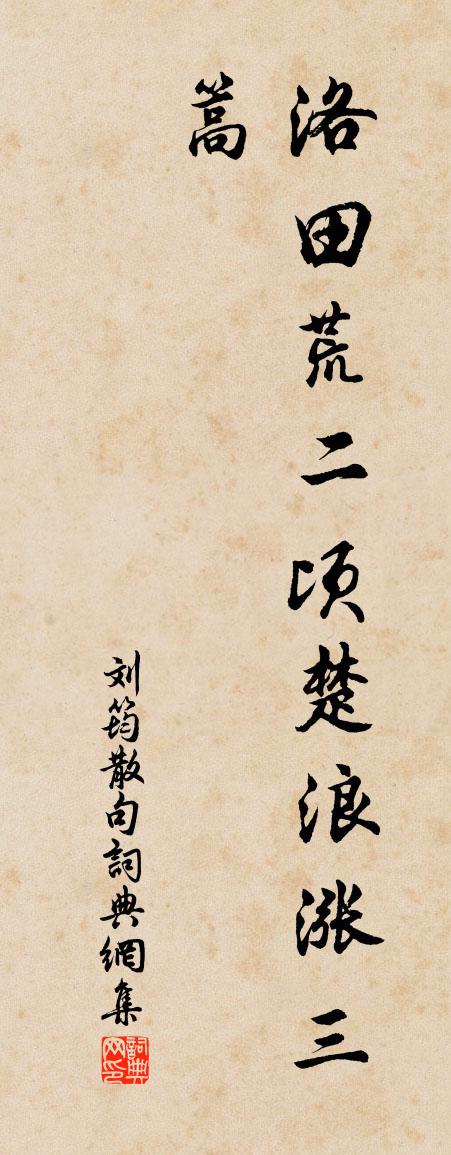 洛田荒二顷楚浪涨三
篙
刘筠散句詞典網集
詞典
网印